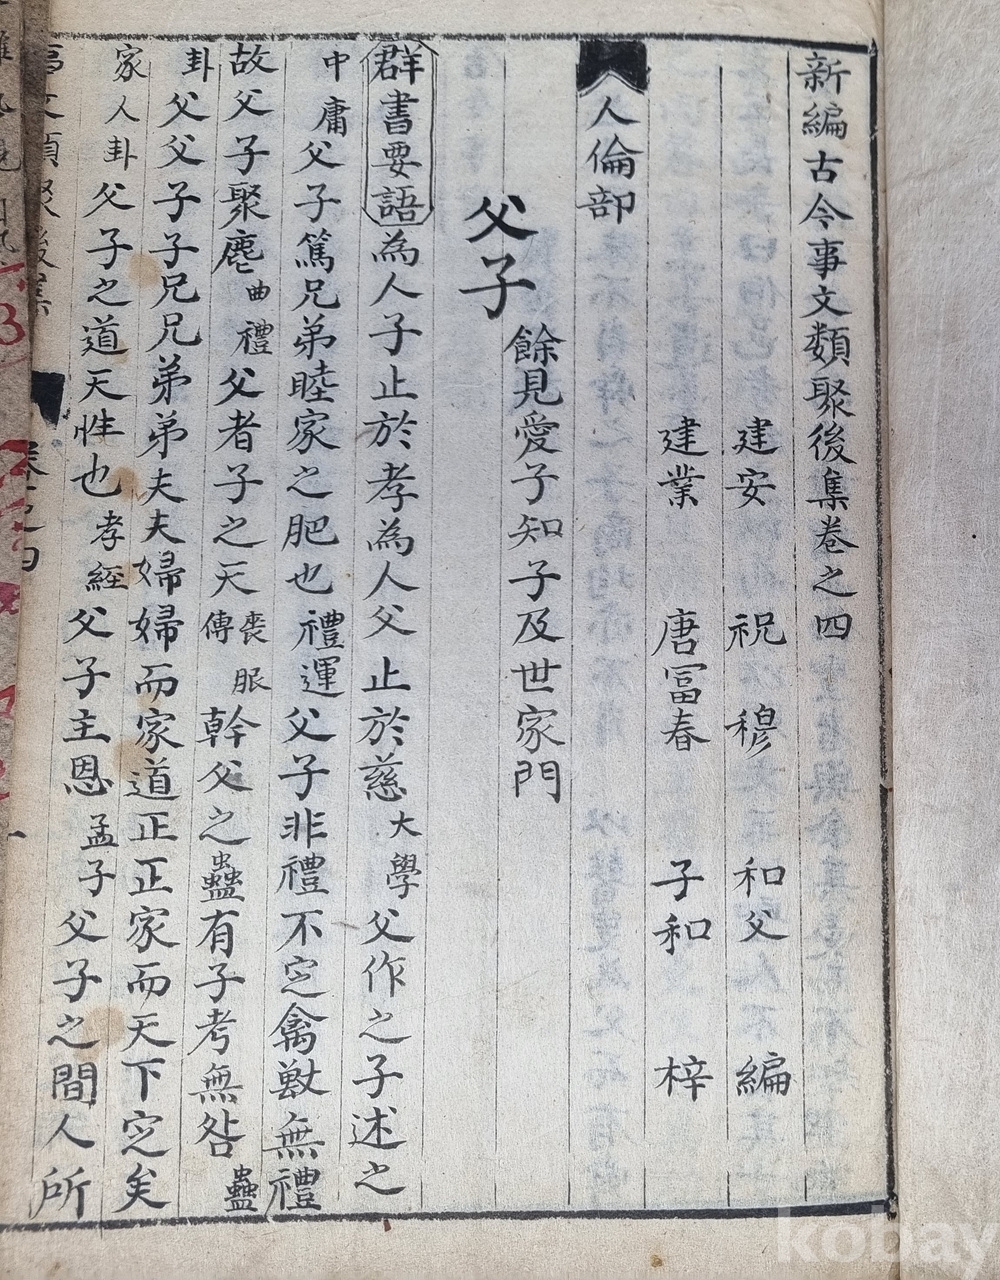 新編古今事文類聚後集卷之四
建安 祝穆 和父 編
建業 唐冨春 子和 梓
人倫部
父子 餘見愛子知子及世家門
群書要語為人子止於孝為人父止於慈大學父作之子述之
中庸父子篤兄弟睦家之肥也禮運父子非禮不定禽獸無禮
故父子聚麀曲禮父者子之天喪服傳幹父之蠱有子考無咎蠱
卦父父子子兄兄弟弟夫夫婦婦而家道正正家而天下定矣
家人卦父子之道天性也孝經父子主恩孟子父子之間人所
事文類聚後集
卷之四
一
kobay